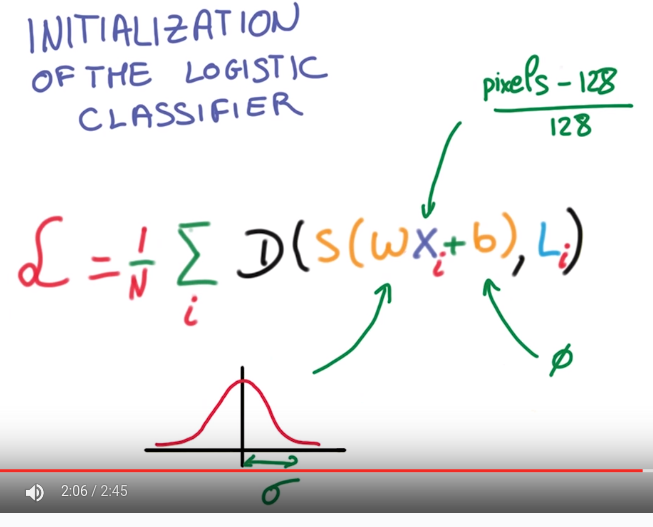 INITIALIZATION
OF THE LOGISTIC
CLASSIFIER
pixels - 128
128
ℒ = 1/N Σ_i D(S(WX_i+b), L_i)
ø
σ
2:06 / 2:45